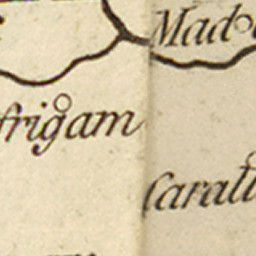 Mado
frigam
Caratt